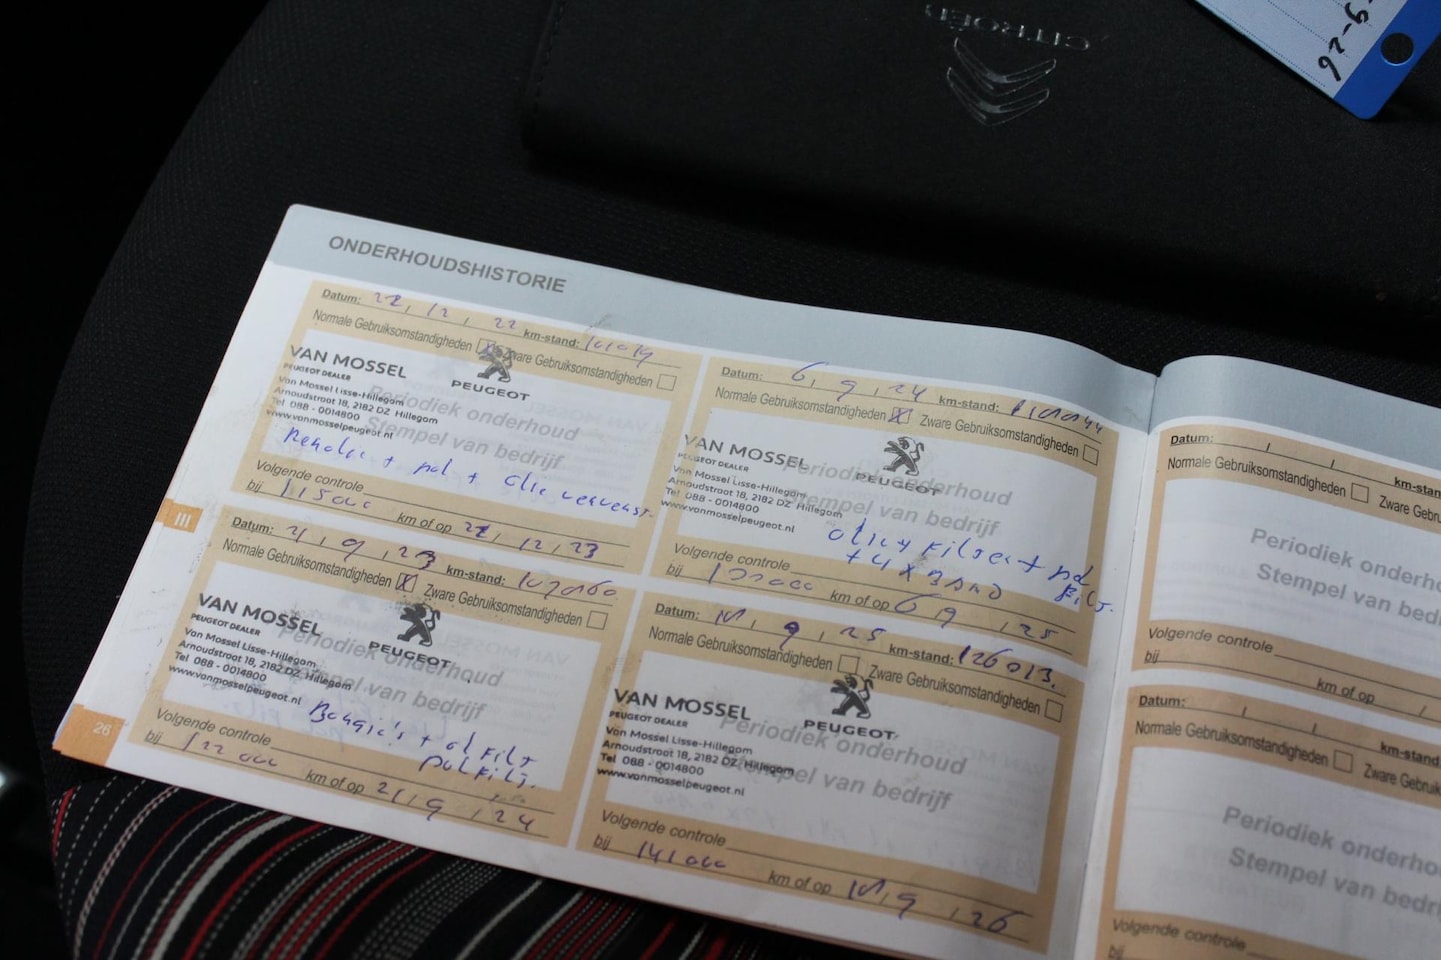 CITROËN
-9-26
ONDERHOUDSHISTORIE
Datum: 22, 12, 22 km-stand:
Normale Gebruiksomstandigheden Zware Gebruiksomstandigheden
VAN MOSSEL
PEUGEOT DEALER
PEUGEOT
Van Mossel Lisse-Hillegom
Arnoudstraat 18, 2182 DZ Hillegom
Tel 088 - 0014800
www.vanmosselpeugeot.nl
Periodiek onderhoud
Stempel van bedrijf
+ olie ververst.
Volgende controle
bij 115000 km of op 22, 12, 23
III
Datum: 21, 9, 23 km-stand: 107060
Normale Gebruiksomstandigheden X Zware Gebruiksomstandigheden
VAN MOSSEL
PEUGEOT DEALER
PEUGEOT
Van Mossel Lisse-Hillegom
Arnoudstraat 18, 2182 DZ Hillegom
Tel 088 - 0014800
www.vanmosselpeugeot.nl
Periodiek onderhoud
Stempel van bedrijf
Bougie's + ol Filt
polFilt.
Volgende controle
bij 122000 km of op 21, 9, 24
26
Datum: 6, 9, 24 km-stand:
Normale Gebruiksomstandigheden X Zware Gebruiksomstandigheden
VAN MOSSEL
PEUGEOT DEALER
PEUGEOT
Van Mossel Lisse-Hillegom
Arnoudstraat 18, 2182 DZ Hillegom
Tel 088 - 0014800
www.vanmosselpeugeot.nl
Periodiek onderhoud
Stempel van bedrijf
+ 4 X BAND
Volgende controle
bij km of op 6, 9, 25
Datum: 11, 9, 25 km-stand: 126013.
Normale Gebruiksomstandigheden Zware Gebruiksomstandigheden
VAN MOSSEL
PEUGEOT DEALER
PEUGEOT
Van Mossel Lisse-Hillegom
Arnoudstraat 18, 2182 DZ Hillegom
Tel 088 - 0014800
www.vanmosselpeugeot.nl
Periodiek onderhoud
Stempel van bedrijf
Volgende controle
bij 141000 km of op 11, 9, 26
Datum: / / km-stan
Normale Gebruiksomstandigheden Zware Gebruiksoms
Periodiek onderho
Stempel van bed
Volgende controle
bij km of op /
Datum: / / km-sta
Normale Gebruiksomstandigheden Zware Gebruiksom
Periodiek onderho
Stempel van bed
Volgende controle
bij